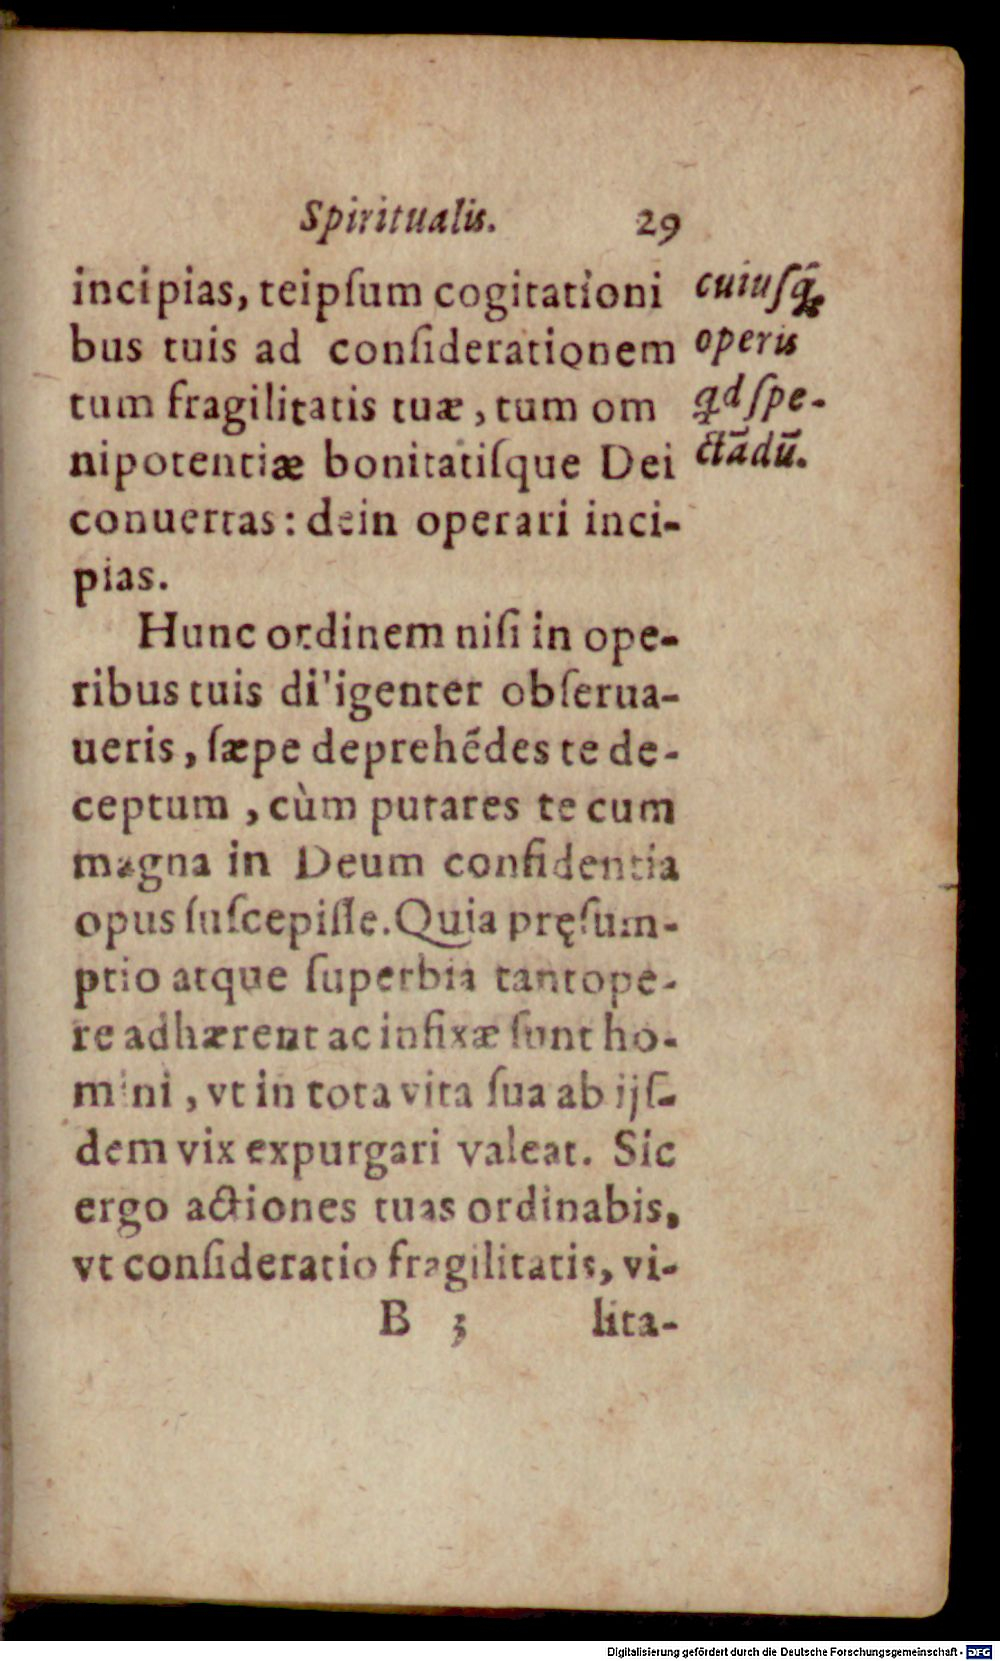 Spiritualis. 29
incipias, teipſum cogitationi
bus tuis ad conſiderationem
tum fragilitatis tuæ, tum om
nipotentiæ bonitatiſque Dei
conuertas: dein operari inci-
pias.
cuiuſq́;
operis
qd ſpe-
ctādū.
Hunc ordinem niſi in ope-
ribus tuis diligenter obſerua-
ueris, ſæpe deprehēdes te de-
ceptum, cùm putares te cum
magna in Deum confidentia
opus ſuſcepiſſe. Quia pręſum-
ptio atque ſuperbia tantope-
re adhærent ac infixæ ſunt ho-
mini, vt in tota vita ſua ab ijſ-
dem vix expurgari valeat. Sic
ergo actiones tuas ordinabis,
vt conſideratio fragilitatis, vi-
B 3 lita-
Digitalisierung gefördert durch die Deutsche Forschungsgemeinschaft - DFG